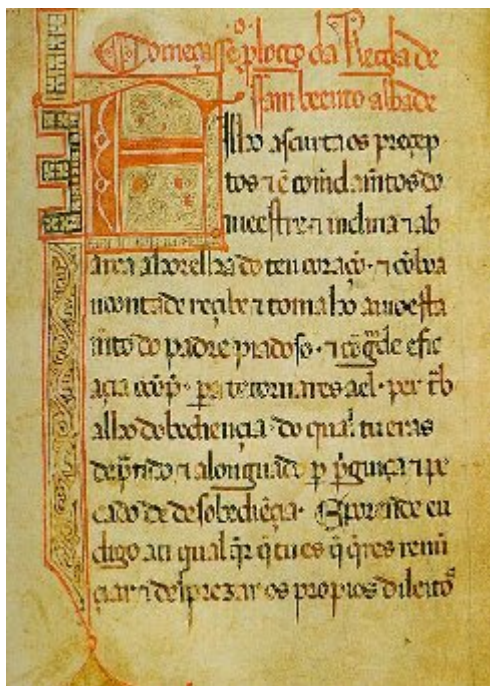 Começasse o plogo da Regla de
sam beento abbade
Filho ascuita os precep
tos ⁊ ẽ
meestre ⁊ inclina ⁊ ab
a orelha do teu coraçõ ⁊ cõ boa
uoontade reçibe ⁊ toma ho amoesta
mẽto do padre piadoso ⁊ cõ gde efic
açia por te tornares a el per tb
alho dobediençia do qual tu eras
⁊ alonguado p pguiça ⁊ pe
cado de desobediẽçia Eporende eu
digo a ti qual qr q tu es q qres renũ
çiar ⁊ desprezar os propios